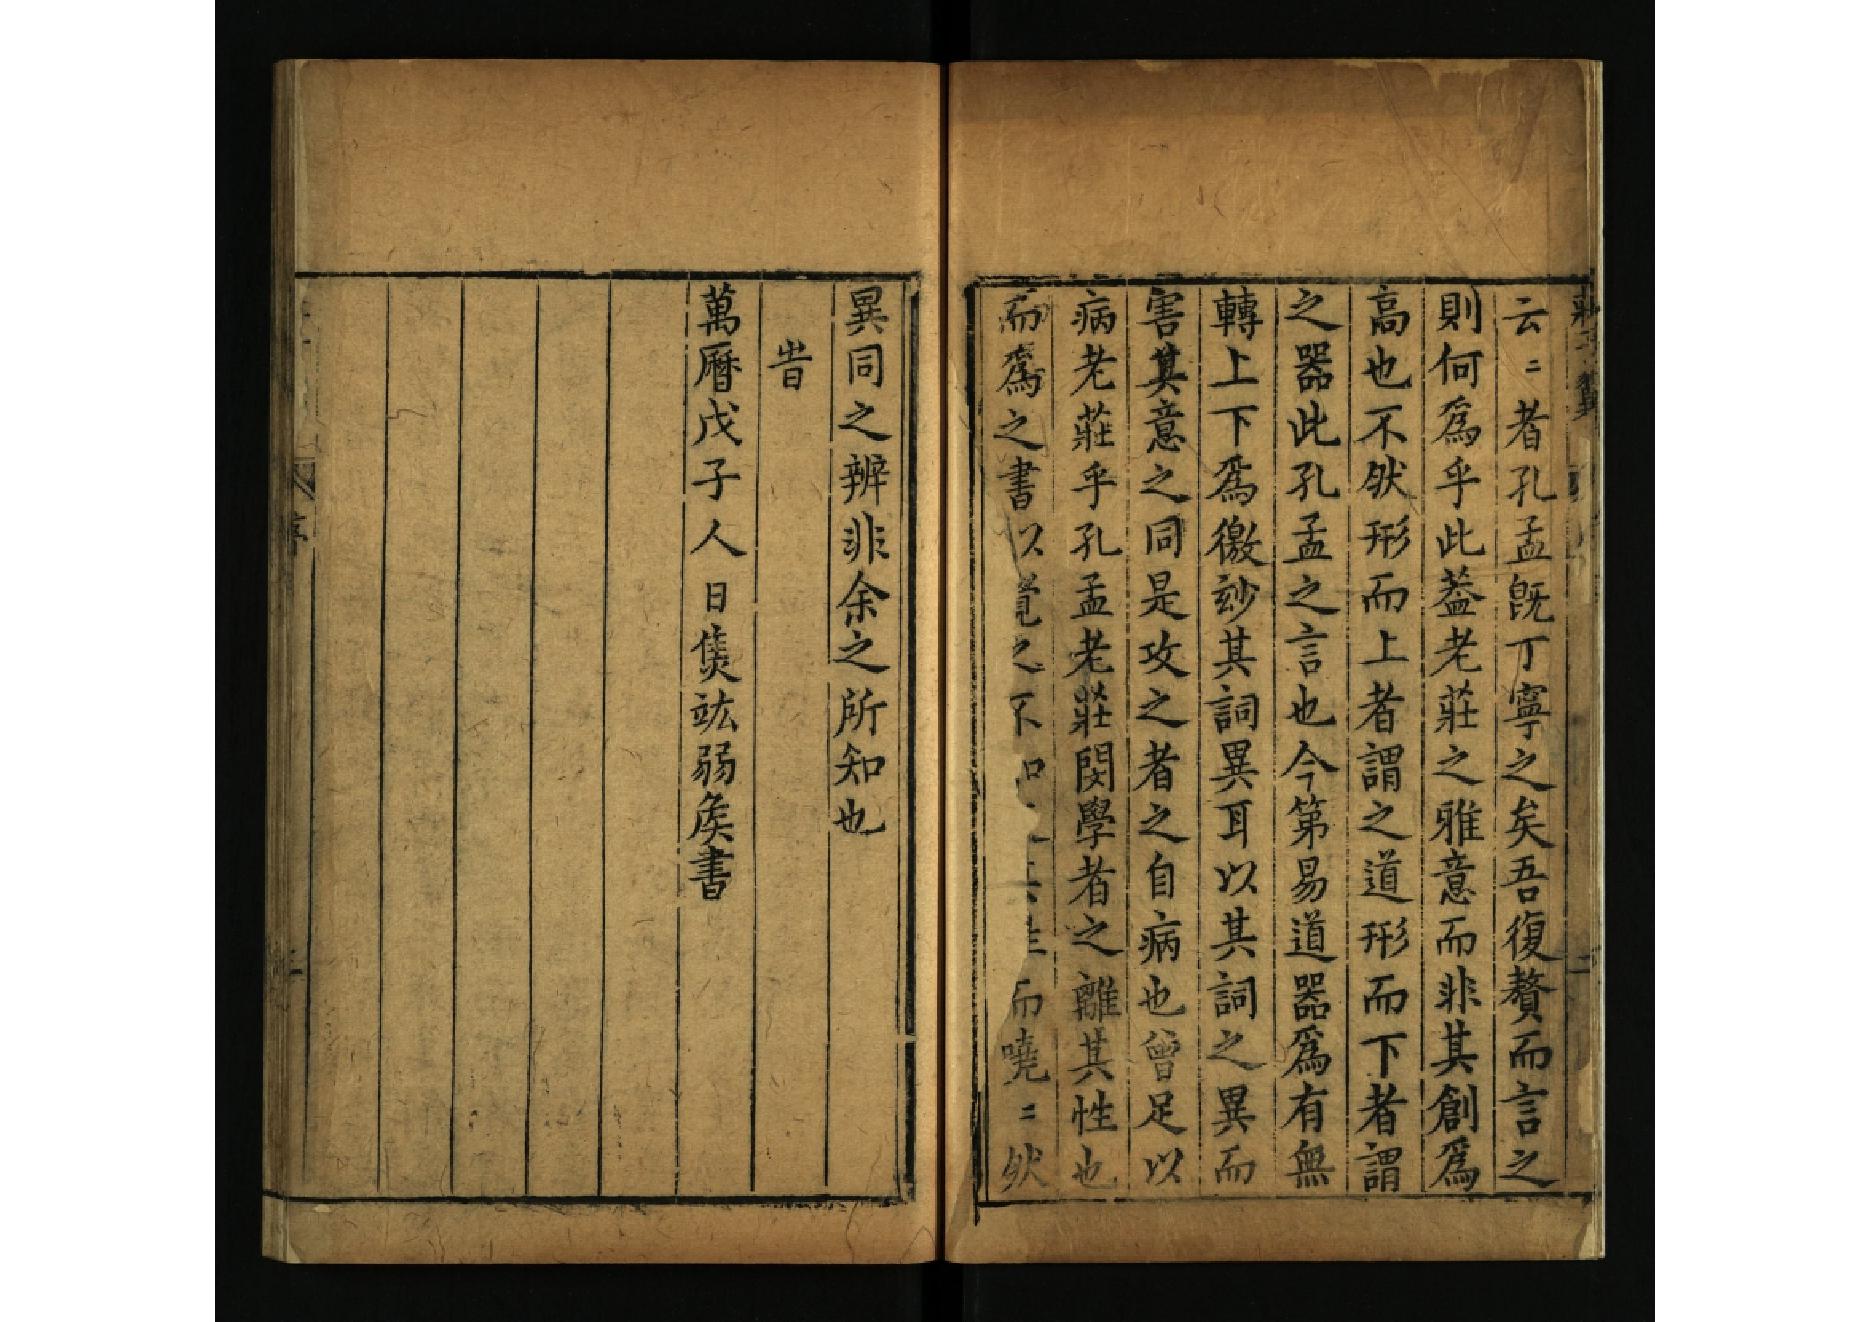 莊子翼
云〻者孔孟旣丁寧之矣吾復贅而言之
則何爲乎此葢老莊之雅意而非其創爲
高也不然形而上者謂之道形而下者謂
之器此孔孟之言也今第易道器爲有無
轉上下爲徼玅其詞異耳以其詞之異而
害其意之同是攻之者之自病也曾足以
病老莊乎孔孟老莊閔學者之離其性也
而爲之書以覺之不知 性而嘵〻然
異同之辨非余之所知也
旹
萬曆戊子人日焦竑弱矦書
序